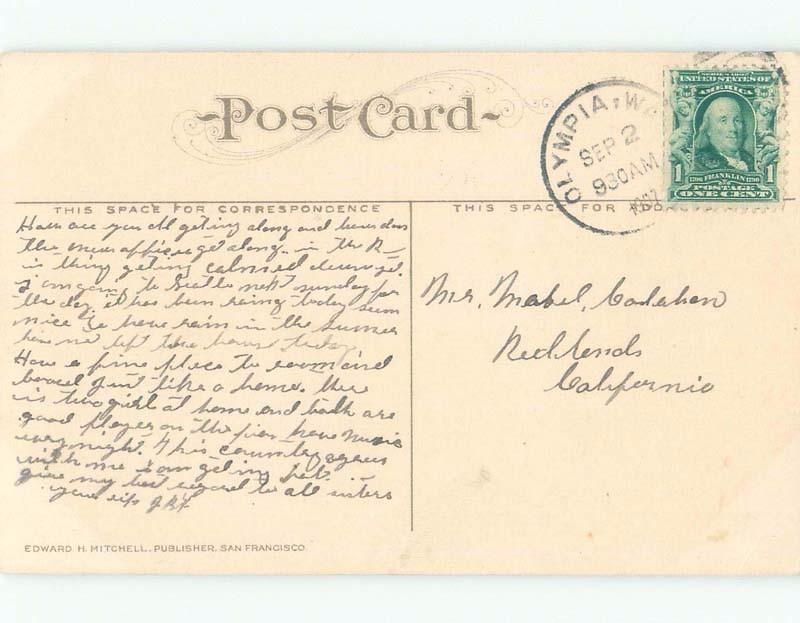 Post Card
OLYMPIA, W
SEP 2
930AM
1907
SERIES 1902
UNITED STATES OF
AMERICA
1 1706 FRANKLIN 1790 1
POSTAGE
ONE CENT
THIS SPACE FOR CORRESPONDENCE
THIS SPACE FOR
How are you all getting along and how does
the new officers get along in the R
is thing getting calmed down yet.
I am going to next sunday for
the day it has been raing today seem
nice to have rain in the summer
have not left the house today
Have a fine place to room and
board just like a home. there
is two girl at home and both are
good player on the have music
every night. this country agrees
with me I am geting fat.
give my best regard to all sisters
your
Mr. Mabel, Calahan
Redlands
California
EDWARD H. MITCHELL, PUBLISHER, SAN FRANCISCO